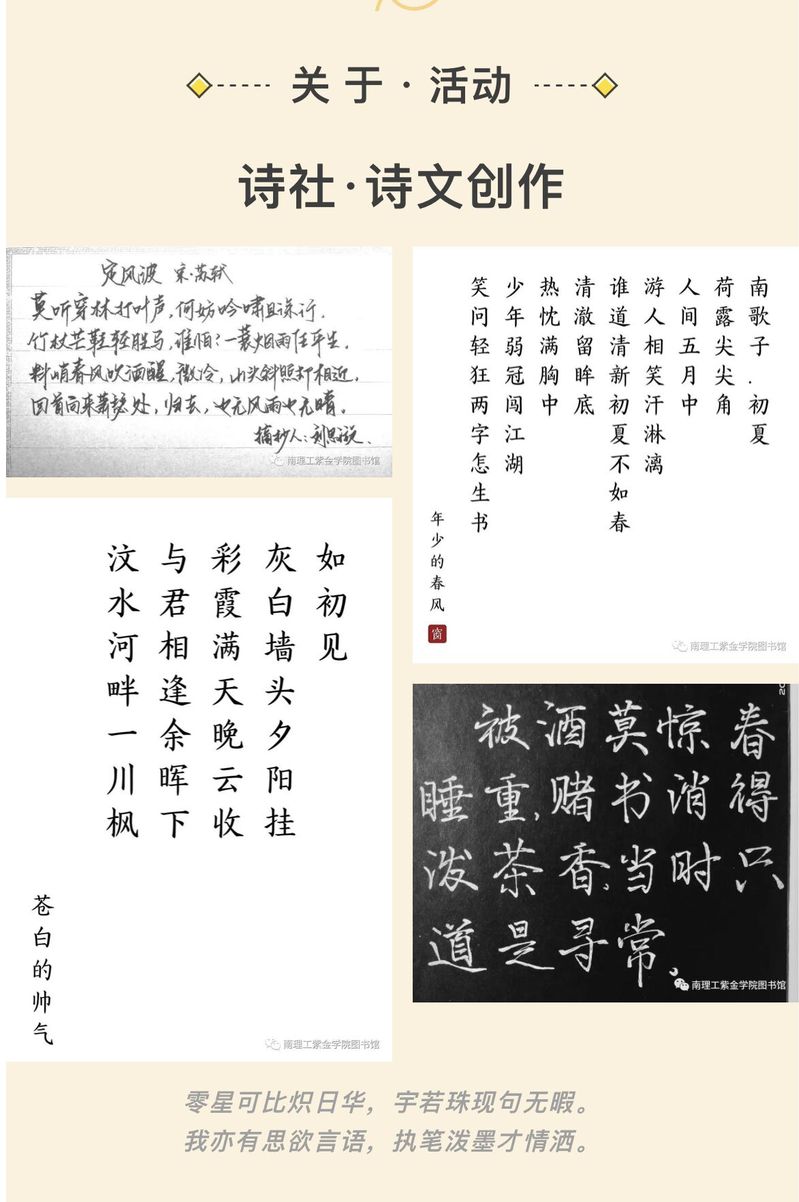 关于·活动
诗社·诗文创作
定风波 宋·苏轼
莫听穿林打叶声,何妨吟啸且徐行。
竹杖芒鞋轻胜马,谁怕?一蓑烟雨任平生。
料峭春风吹酒醒,微冷,山头斜照却相迎。
回首向来萧瑟处,归去,也无风雨也无晴。
摘抄人:刘思璇.
南理工紫金学院图书馆
南歌子.初夏
荷露尖尖角
人间五月中
游人相笑汗淋漓
谁道清新初夏不如春
清澈留眸底
热忱满胸中
少年弱冠闯江湖
笑问轻狂两字怎生书
年少的春风
窗
南理工紫金学院图书馆
如初见
灰白墙头夕阳挂
彩霞满天晚云收
与君相逢余晖下
汶水河畔一川枫
苍白的帅气
南理工紫金学院图书馆
被酒莫惊春
睡重,赌书消得
泼茶香,当时只
道是寻常。
南理工紫金学院图书馆
零星可比炽日华，字若珠现句无暇。
我亦有思欲言语，执笔泼墨才情洒。